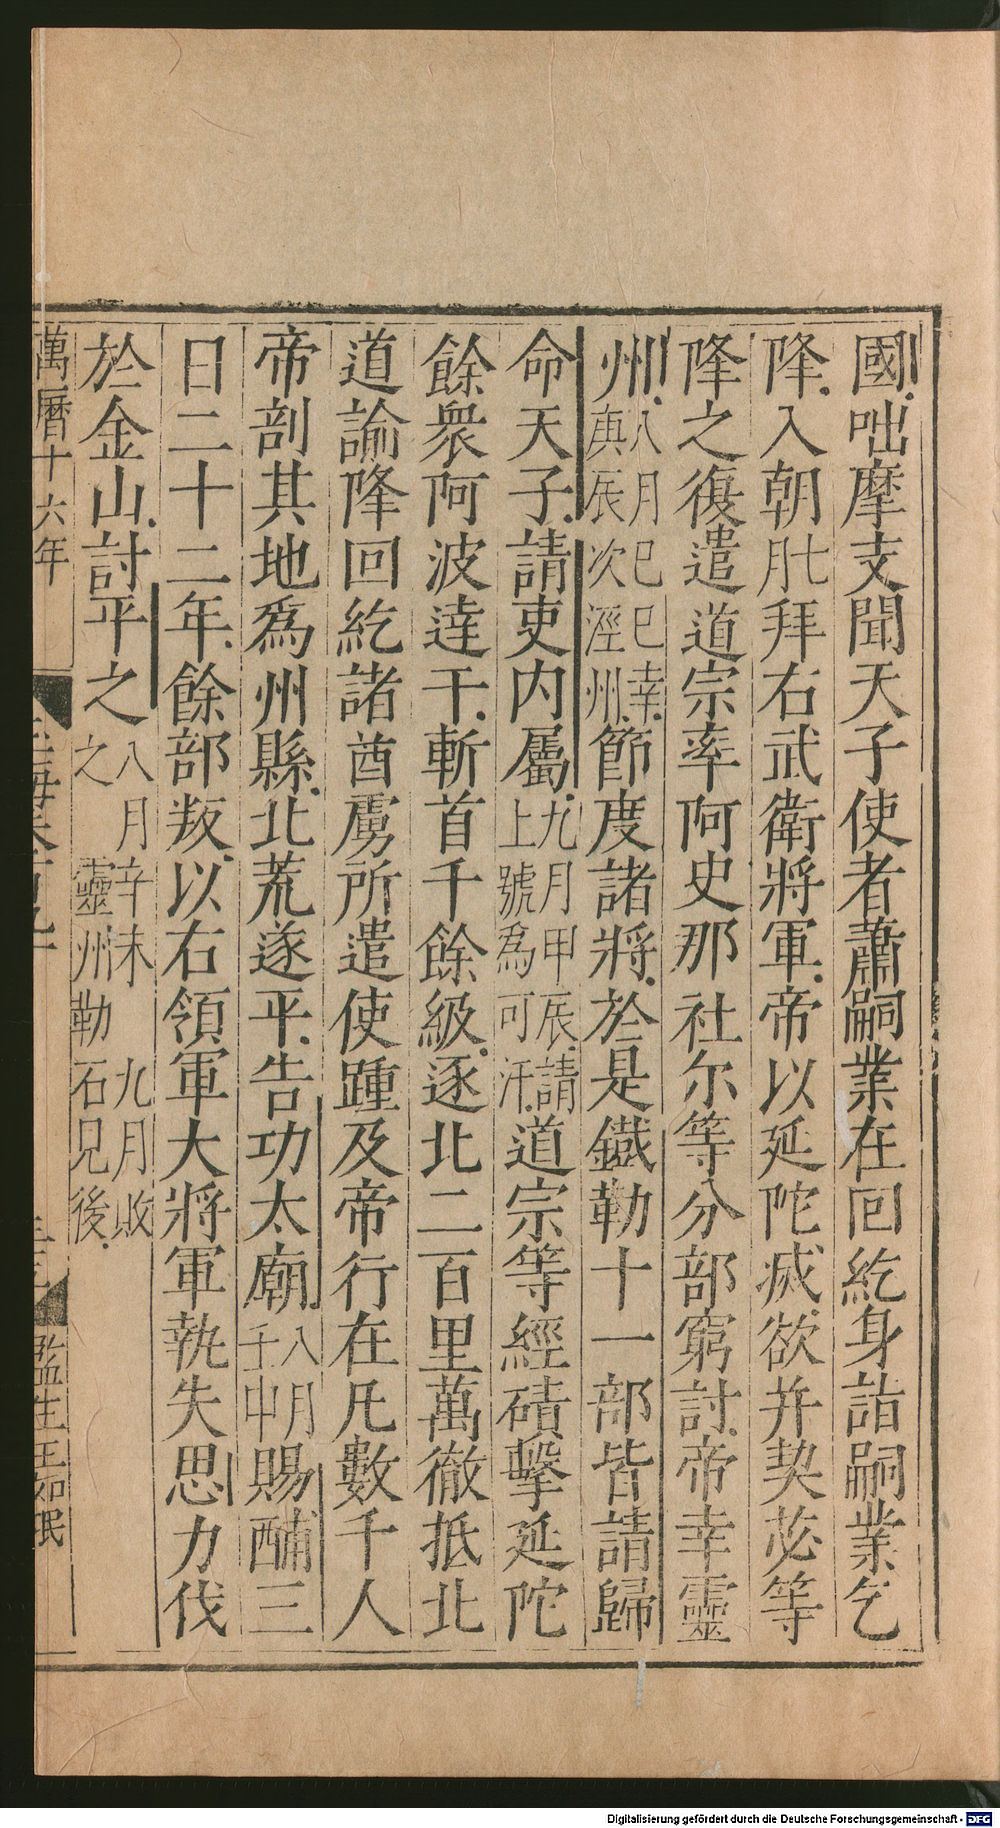 國咄摩支聞天子使者蕭嗣業在回紇身詣嗣業乞
降入朝七月拜右武衛將軍帝以延陀㓕欲并契苾等
降之復遣道宗率阿史那社尔等分部窮討帝幸靈
州八月己巳幸庚辰次涇州節度諸將於是鐵勒十一部皆請歸
命天子請吏内屬九月甲辰請上號爲可汗道宗等經磧擊延陀
餘衆阿波達干斬首千餘級逐北二百里萬徹抵北
道諭降回紇諸酋虜所遣使踵及帝行在凡數千人
帝剖其地爲州縣北荒遂平告功太廟八月壬申賜酺三
日二十二年餘部叛以右領軍大將軍執失思力伐
於金山討平之八月辛未 九月敗之 靈州勒石見後
萬曆十六年
監生王
Digitalisierung gefördert durch die Deutsche Forschungsgemeinschaft - DFG